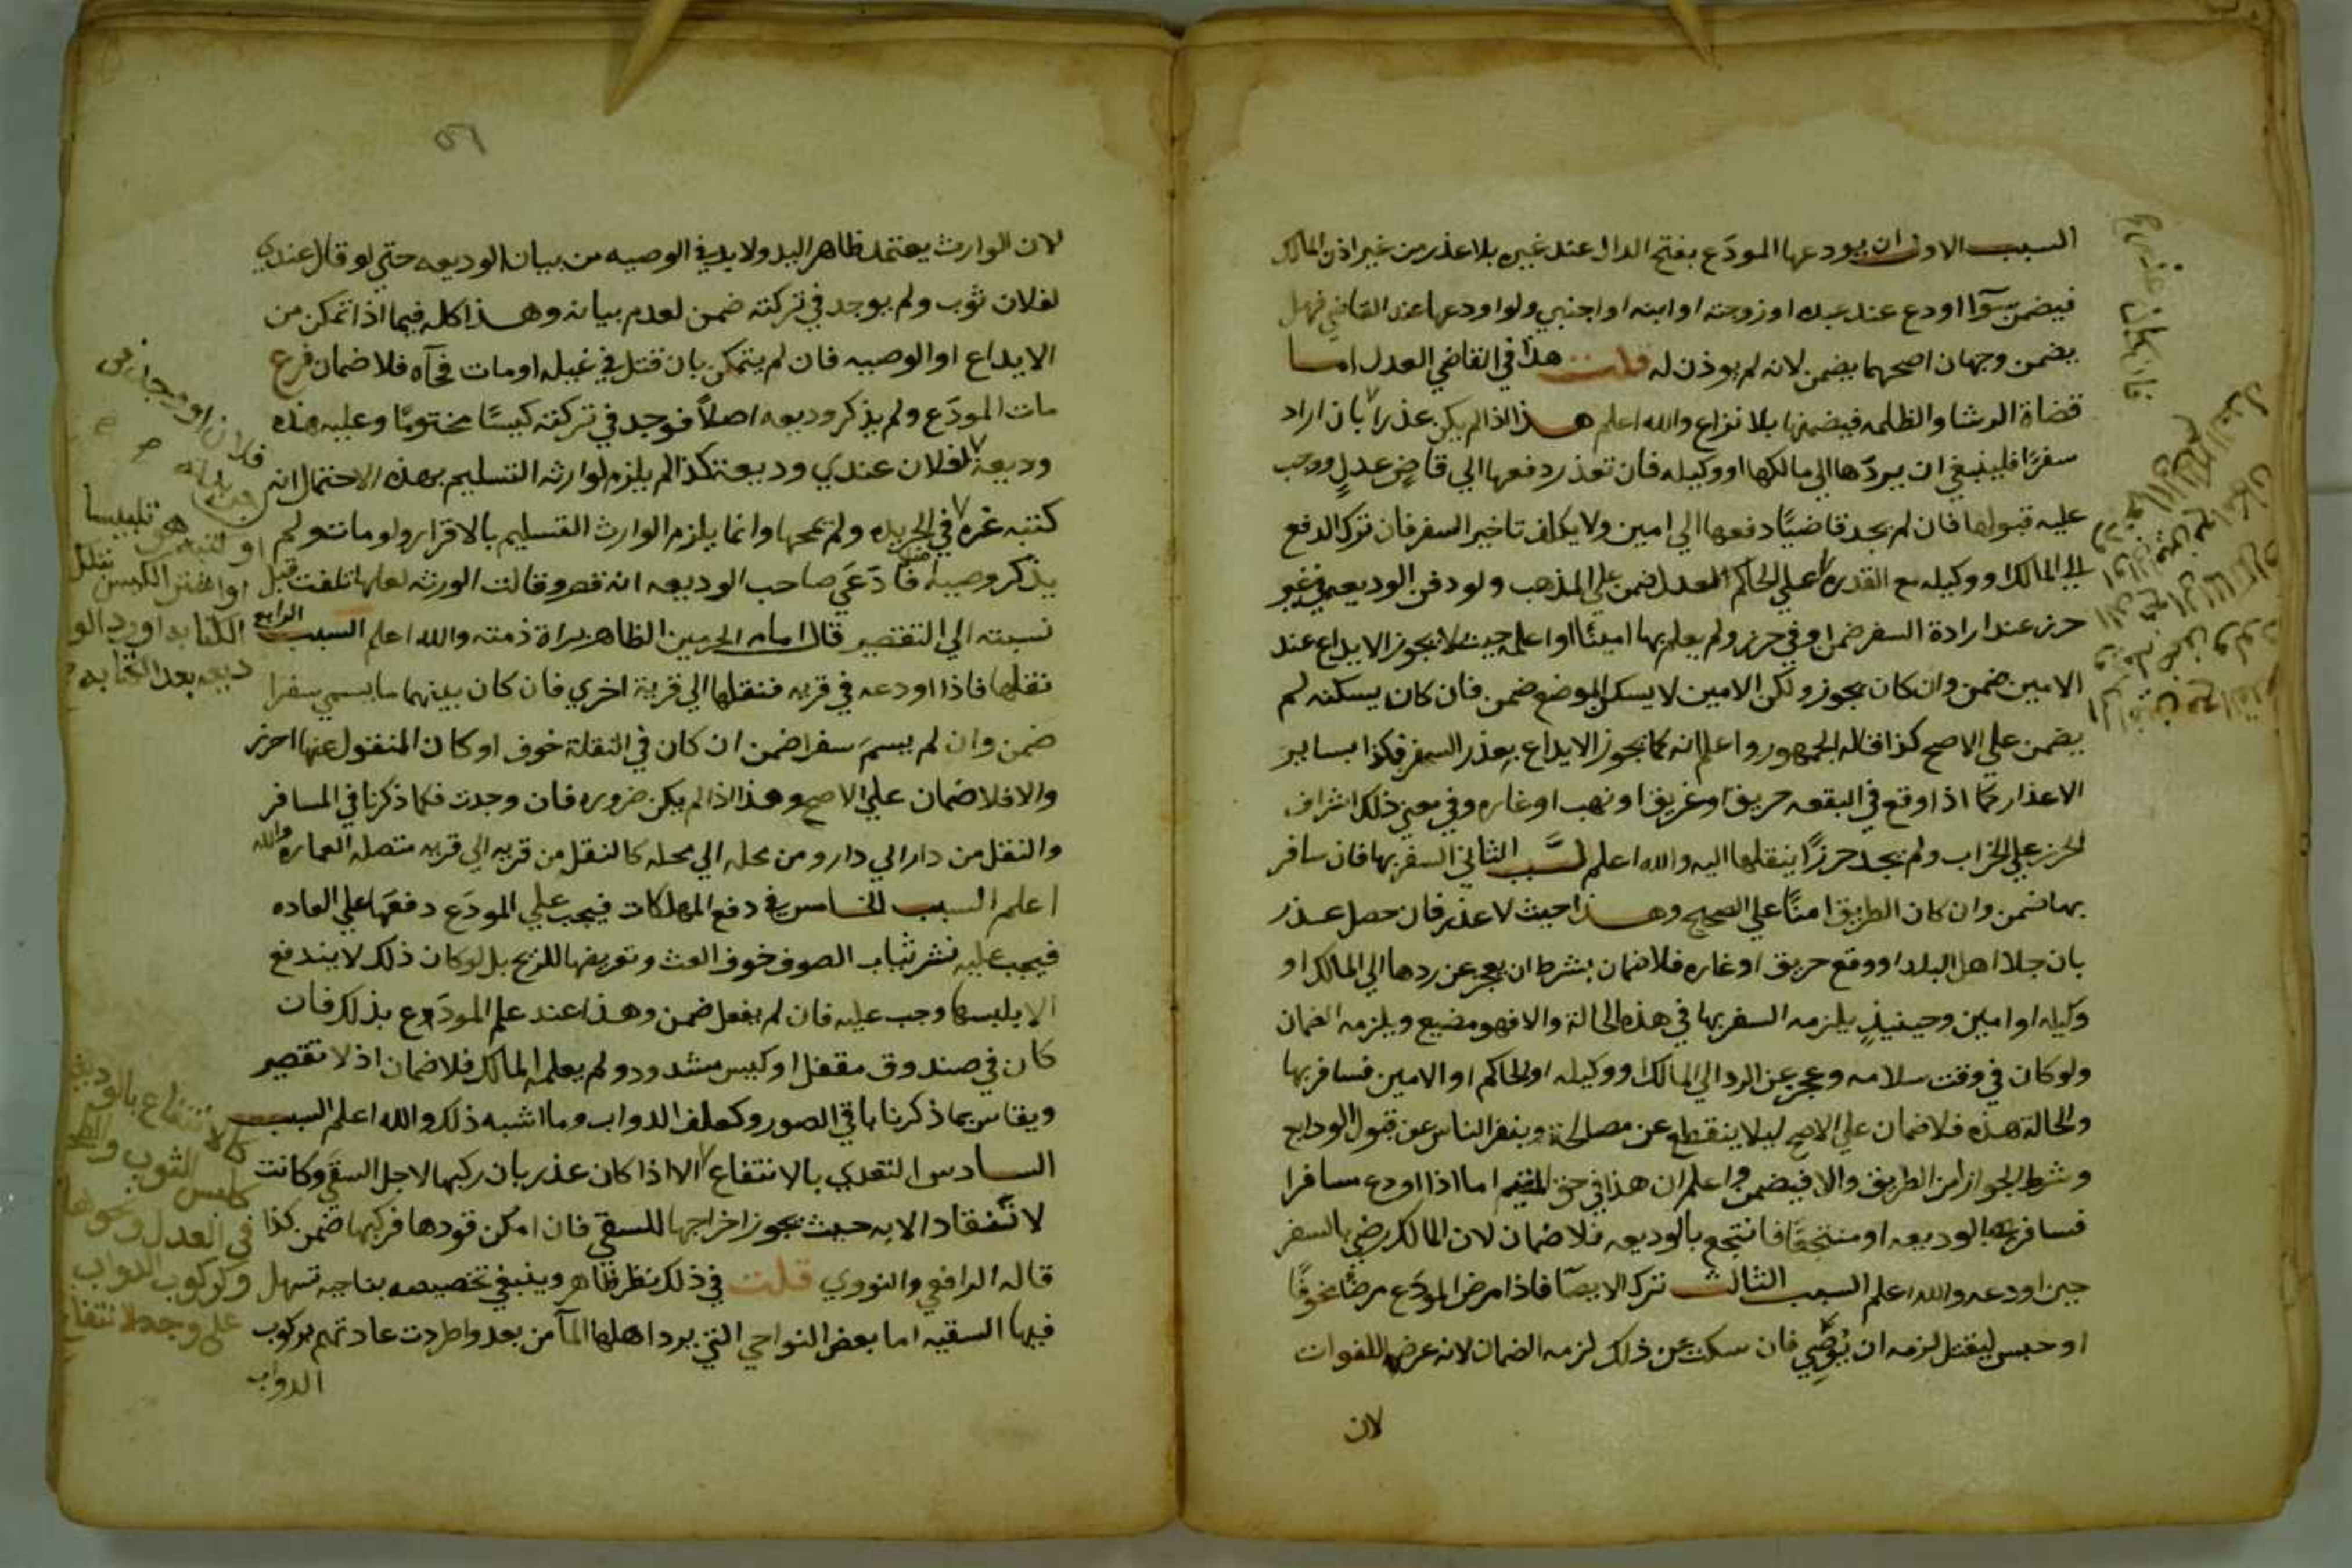 السبب الاول ان يودعها المودَع بفتح الدال عند غيره بلا عذر من غير اذن المالك
فيضمن سوآا اودع عند عبده او زوجته او ابنه او اجنبي ولو اودعها عند القاضي فهل
يضمن وجهان اصحهما يضمن لانه لم يوذن له قلت هذا في القاضي العدل اما
قضاة الرشا والظلمه فيضمنها بلا نزاع والله اعلم هذا اذا لم يكن عذر بان اراد
سفرًا فلينبغي ان يردّها الي مالكها او وكيله فان تعذر دفعها الي قاضٍ عدلٍ ووجب
عليه قبولها فان لم يجد قاضيًا دفعها الي امين ولا يكلف تاخير السفر فان ترك الدفع
الي المالك او وكيله مع القدرة اعلي الحاكم العدل ضمن علي المذهب ولو دفن الوديعه في غير
حرز عند ارادة السفر ضمن او في حرز ولم يعلم بها امينًا او اعلمه حيث لا يجوز الايداع عند
الامين ضمن وان كان يجوز ولكن الامين لا يسكن الموضع ضمن فان كان يسكنه لم
يضمن علي الاصح كذا قاله الجمهور واعلم انه كما يجوز الايداع بعذر السفر فكذا بساير
الاعذار كما اذا وقع في البقعه حريق او غريق او نهب او غاره وفي معني ذلك اشراف
الحرز علي الخراب ولم يجد حرزًا ينقلها اليه والله اعلم السبب الثاني السفر بها فان سافر
بها ضمن وان كان الطريق امنًا علي الصحيح وهذا حيث لا عذر فان حصل عذر
بان جلا اهل البلد او وقع حريق او غاره فلا ضمان بشرط ان يعجز عن ردها الي المالك او
وكيله او امين وحينيذٍ يلزمه السفر بها في هذه الحالة والا فهو مضيع ويلزمه الضمان
ولو كان في وقت سلامه وعجز عن الرد الي المالك او وكيله او الحاكم او الامين فسافر بها
والحالة هذه فلا ضمان علي الاصح ليلا ينقطع عن مصالحه وينفر الناس عن قبول الودايع
وشرط الجواز امن الطريق والا فيضمن واعلم ان هذا في حق المقيم اما اذا اودع مسافرا
فسافر بالوديعه او منتجعًا فانتجع بالوديعه فلا ضمان لان المالك رضي بالسفر
حين اودعه والله اعلم السبب الثالث ترك الايصآ فاذا مرض المودَع مرضًا مخوفًا
او حبس ليقتل لزمه ان يُوصِي فان سكت عن ذلك لزمه الضمان لانه عرضها للفوات
لان
لان الوارث يعتمد ظاهر اليد ولا بد في الوصيه من بيان الوديعه حتي لو قال عندي
لفلان ثوب ولم يوجد في تركته ضمن لعدم بيانه وهذا كله فيما اذا تمكن من
الايداع او الوصيه فان لم يتمكن بان قتل في غيله او مات فجآه فلا ضمان فرع
مات المودَع ولم يذكر وديعه اصلاً فوجد في تركته كيسًا مختومًا وعليه هذه
وديعة لفلان عندي وديعة كذا لم يلزم لوارثه التسليم بهذه الاحتمال انه
كتبه غره في الجريده ولم يمحها وانما يلزم الوارث التسليم بالاقرار ولو مات ولم
يذكر وصية فادَعَي صاحب الوديعه انه قصر وقالت الورثه لعلها تلفت قبل
نسبته الي التقصير قال امام الحرمين الظاهر براة ذمته والله اعلم السبب الرابع
نقلها فاذا اودعه في قريه فنقلها الي قرية اخري فان كان بينهما ما يسمي سفرا
ضمن وان لم يسمَ سفرا ضمن ان كان في النقلة خوف او كان المنقول عنها احرز
والا فلا ضمان علي الاصح وهذا اذا لم يكن ضروره فان وجدت فكما ذكرنا في المسافر
والنقل من دار الي دار ومن محله الي محله كالنقل من قريه الي قريه متصله العماره والله
اعلم السبب الخامس في دفع المهلكات فيجب علي المودَع دفعها علي العاده
فيجب عليه نشر ثياب الصوف خوف العث وتعريضها للريح بل لو كان ذلك لا يندفع
الا بلبسها وجب عليه فان لم يفعل ضمن وهذا عند علم المودَع بذلك فان
كان في صندوق مقفل او كيس مشدود ولم يعلمه المالك فلا ضمان اذ لا تقصير
ويقاس بما ذكرنا باقي الصور وكعلف الدواب وما اشبه ذلك والله اعلم السبب
السادس التعدي بالانتفاع الا اذا كان عذر بان ركبها لاجل السقي وكانت
لا تنقاد الا به حيث يجوز اخراجها للسقي فان امكن قودها فركبها ضمن كذا
قاله الرافعي والنووي قلت في ذلك نظر ظاهر وينبغي تخصيصه بناحيه تسهل
فيها السقيه اما بعض النواحي التي يرد اهلها المآ من بعد واطردت عادتهم بركوب
الدواب
او
تلبيسا
او اهن الكيس
الكتابه او رد الو
ديعه بعد الكتابه
كالانتفاع بالوديعه
كلبس الثوب
في العدل ونحوها
وكركوب الدواب
علي وجه الانتفاع